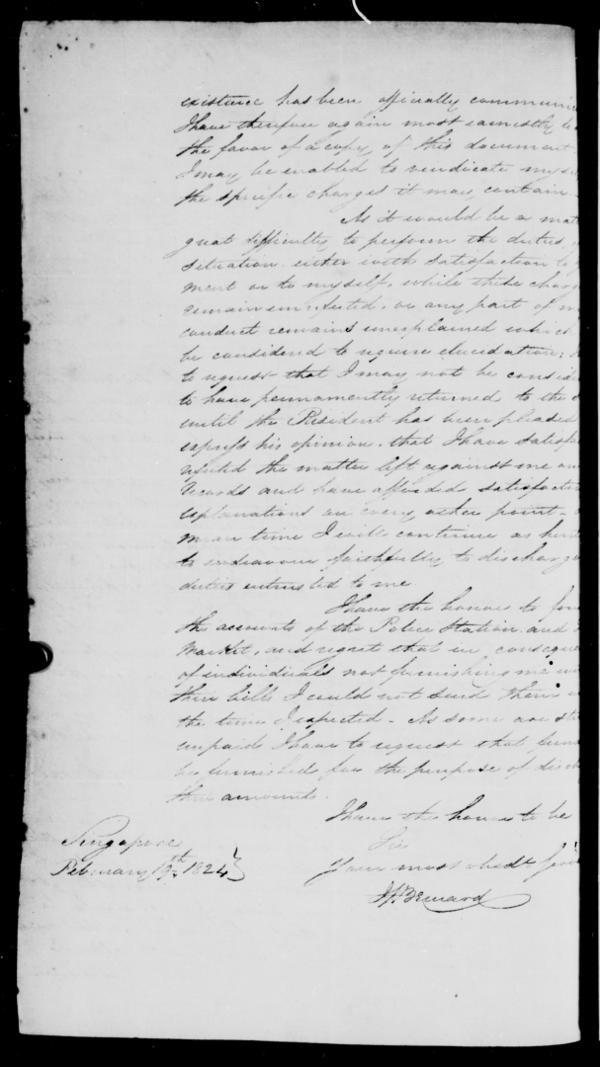 existence has been officially communic
I have therefore again most earnestly to
the favor of a copy of this document
I may be enabled to vindicate myse
the specific charges it may contain.
As it would be a mat
great difficulty to perform the duties
situation either with satisfaction to
ment or to myself, while these charg
remain unrefuted, or any part of m
conduct remains unexplained which
be considered to require elucidation;
to request that I may not be consid
to have permanently returned to the
until the Resident has been pleased
express his opinion, that I have satisfac
refuted the matter left against me on
records and have afforded satisfactory
explanations on every other point.
mean time I will continue as
to endeavour faithfully to discharge
duties entrusted to me.
I have the honor to for
the accounts of the Police Station and
Market, and regret that in conseque
of individuals not furnishing me
their bills I could not send them
the time I expected. As some are sti
unpaid I have to request that
be furnished for the purpose of disch
their amounts.
I have the honor to be
Sir
Your most obedt
Singapore
February 19th 1824
F Bernard